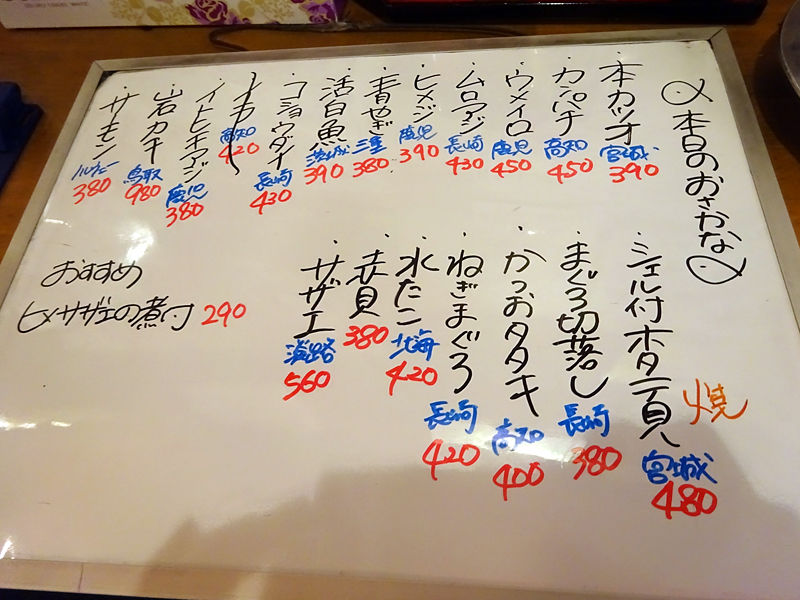 本日のおさかな
本カツオ 宮城 390
カンパチ 高知 450
ウメイロ 鹿児 450
ムロアジ 長崎 430
ヒメジ 鹿児 390
青やぎ 三重 380
活白魚 茨城 390
コショウダイ 長崎 430
高知 420
イトヒキアジ 鹿児 380
岩カキ 鳥取 980
サーモン ノルウェー 380
シェル付ホタテ貝 焼 宮城 480
まぐろ切落し 長崎 380
かつおタタキ 高知 400
ねぎまぐろ 長崎 420
水たこ 北海 420
赤貝 380
サザエ 淡路 560
おすすめ
ヒメサザエの煮付 290